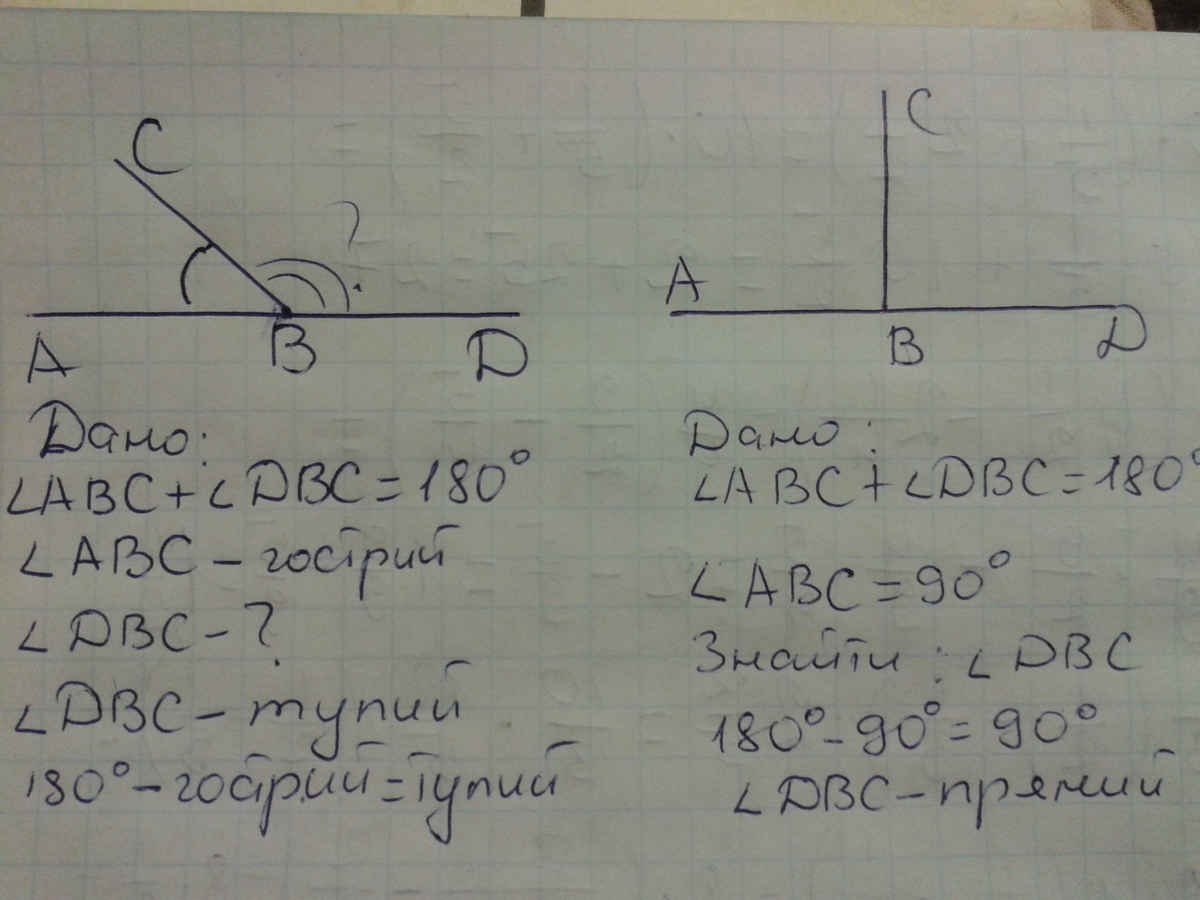 C
?
A B D
Дано:
∠ABC+∠DBC=180°
∠ABC – гострий
∠DBC – ?
∠DBC – тупий
180° – гострий = тупий
C
A
B
D
Дано:
∠ABC+∠DBC=180°
∠ABC=90°
Знайти: ∠DBC
180°-90°=90°
∠DBC – прямий